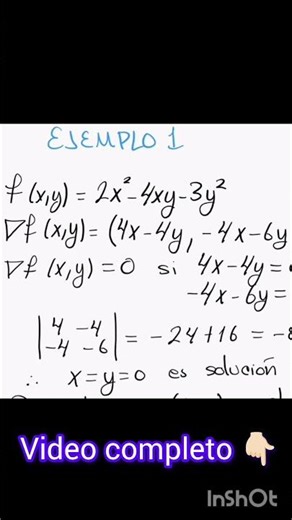 EJEMPLO 1
f(x,y) = 2x² - 4xy - 3y²
∇f(x,y) = (4x - 4y, -4x - 6y
∇f(x,y) = 0 si 4x - 4y =
-4x - 6y =
|4 -4|
|-4 -6| = -24 + 16 = -8
∴ x = y = 0 es solución
Video completo 👇🏻
InShOt